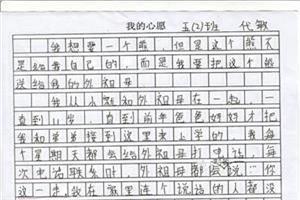 我的心愿 五(2)班 代敏
我想要一个熊,但是这个熊不
是给我自己的,而是我要把这个熊
送给我的外祖母。
我从小就和外祖母在一起,一
直到11岁,直到前年爸爸妈妈才把
我和弟弟接到这里来上学的,我每
个星期天都会给外祖母打电话,每
次电话联系时,外祖母都会说:“你
这一走,我在家里连个说话的人都没